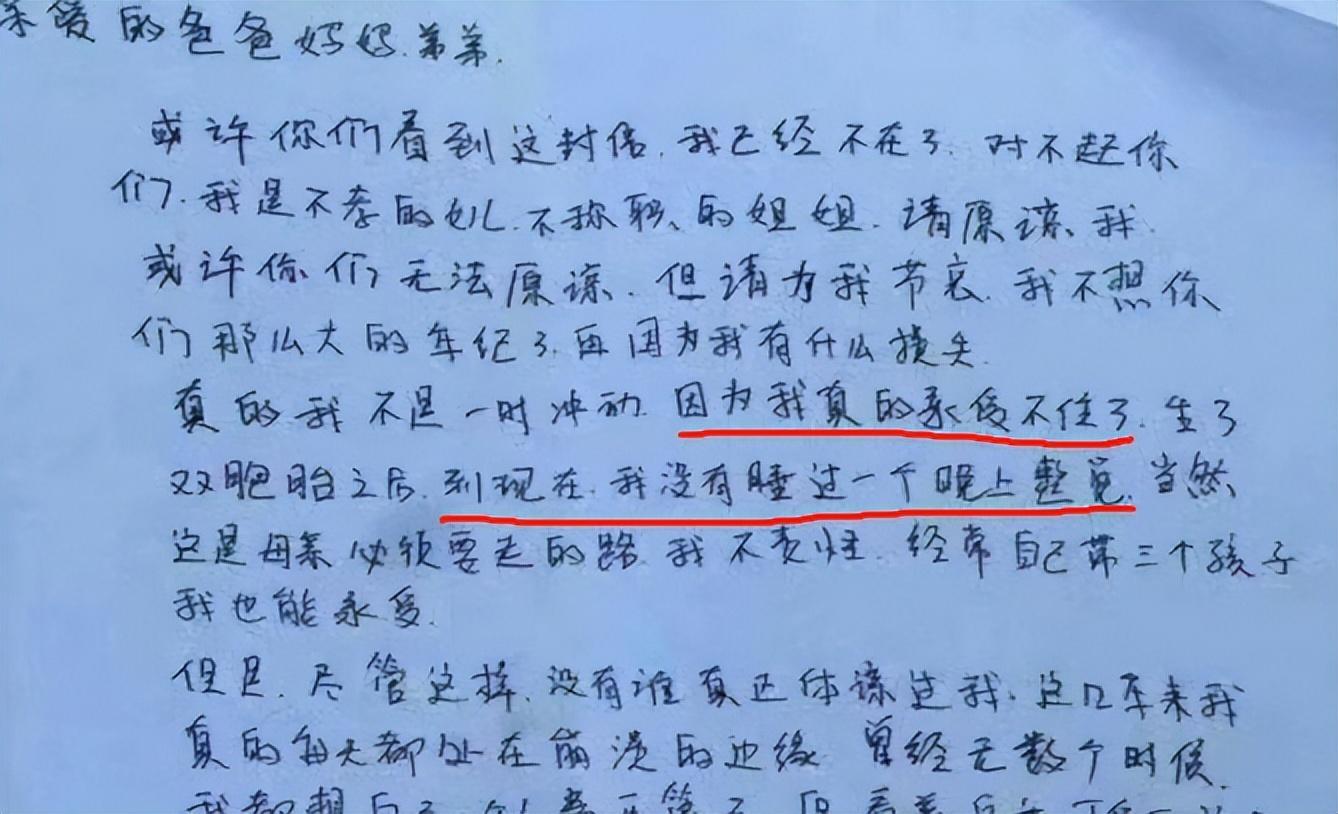 亲爱的爸爸妈妈.弟弟.
或许你们看到这封信.我已经不在了.对不起你
们.我是不孝的女儿.不称职的姐姐.请原谅我.
或许你们无法原谅.但请为我节哀.我不想你
们那么大的年纪了.再因为我有什么损失.
真的我不是一时冲动.因为我真的承受不住了.生了
双胞胎之后.到现在.我没有睡过一个晚上整觉.当然
这是母亲必须要走的路.我不责怪.经常自己带三个孩子
我也能承受.
但是.尽管这样.没有谁真正体谅过我.这几年来我
真的每天都处在崩溃的边缘.曾经无数个时候.
我都想